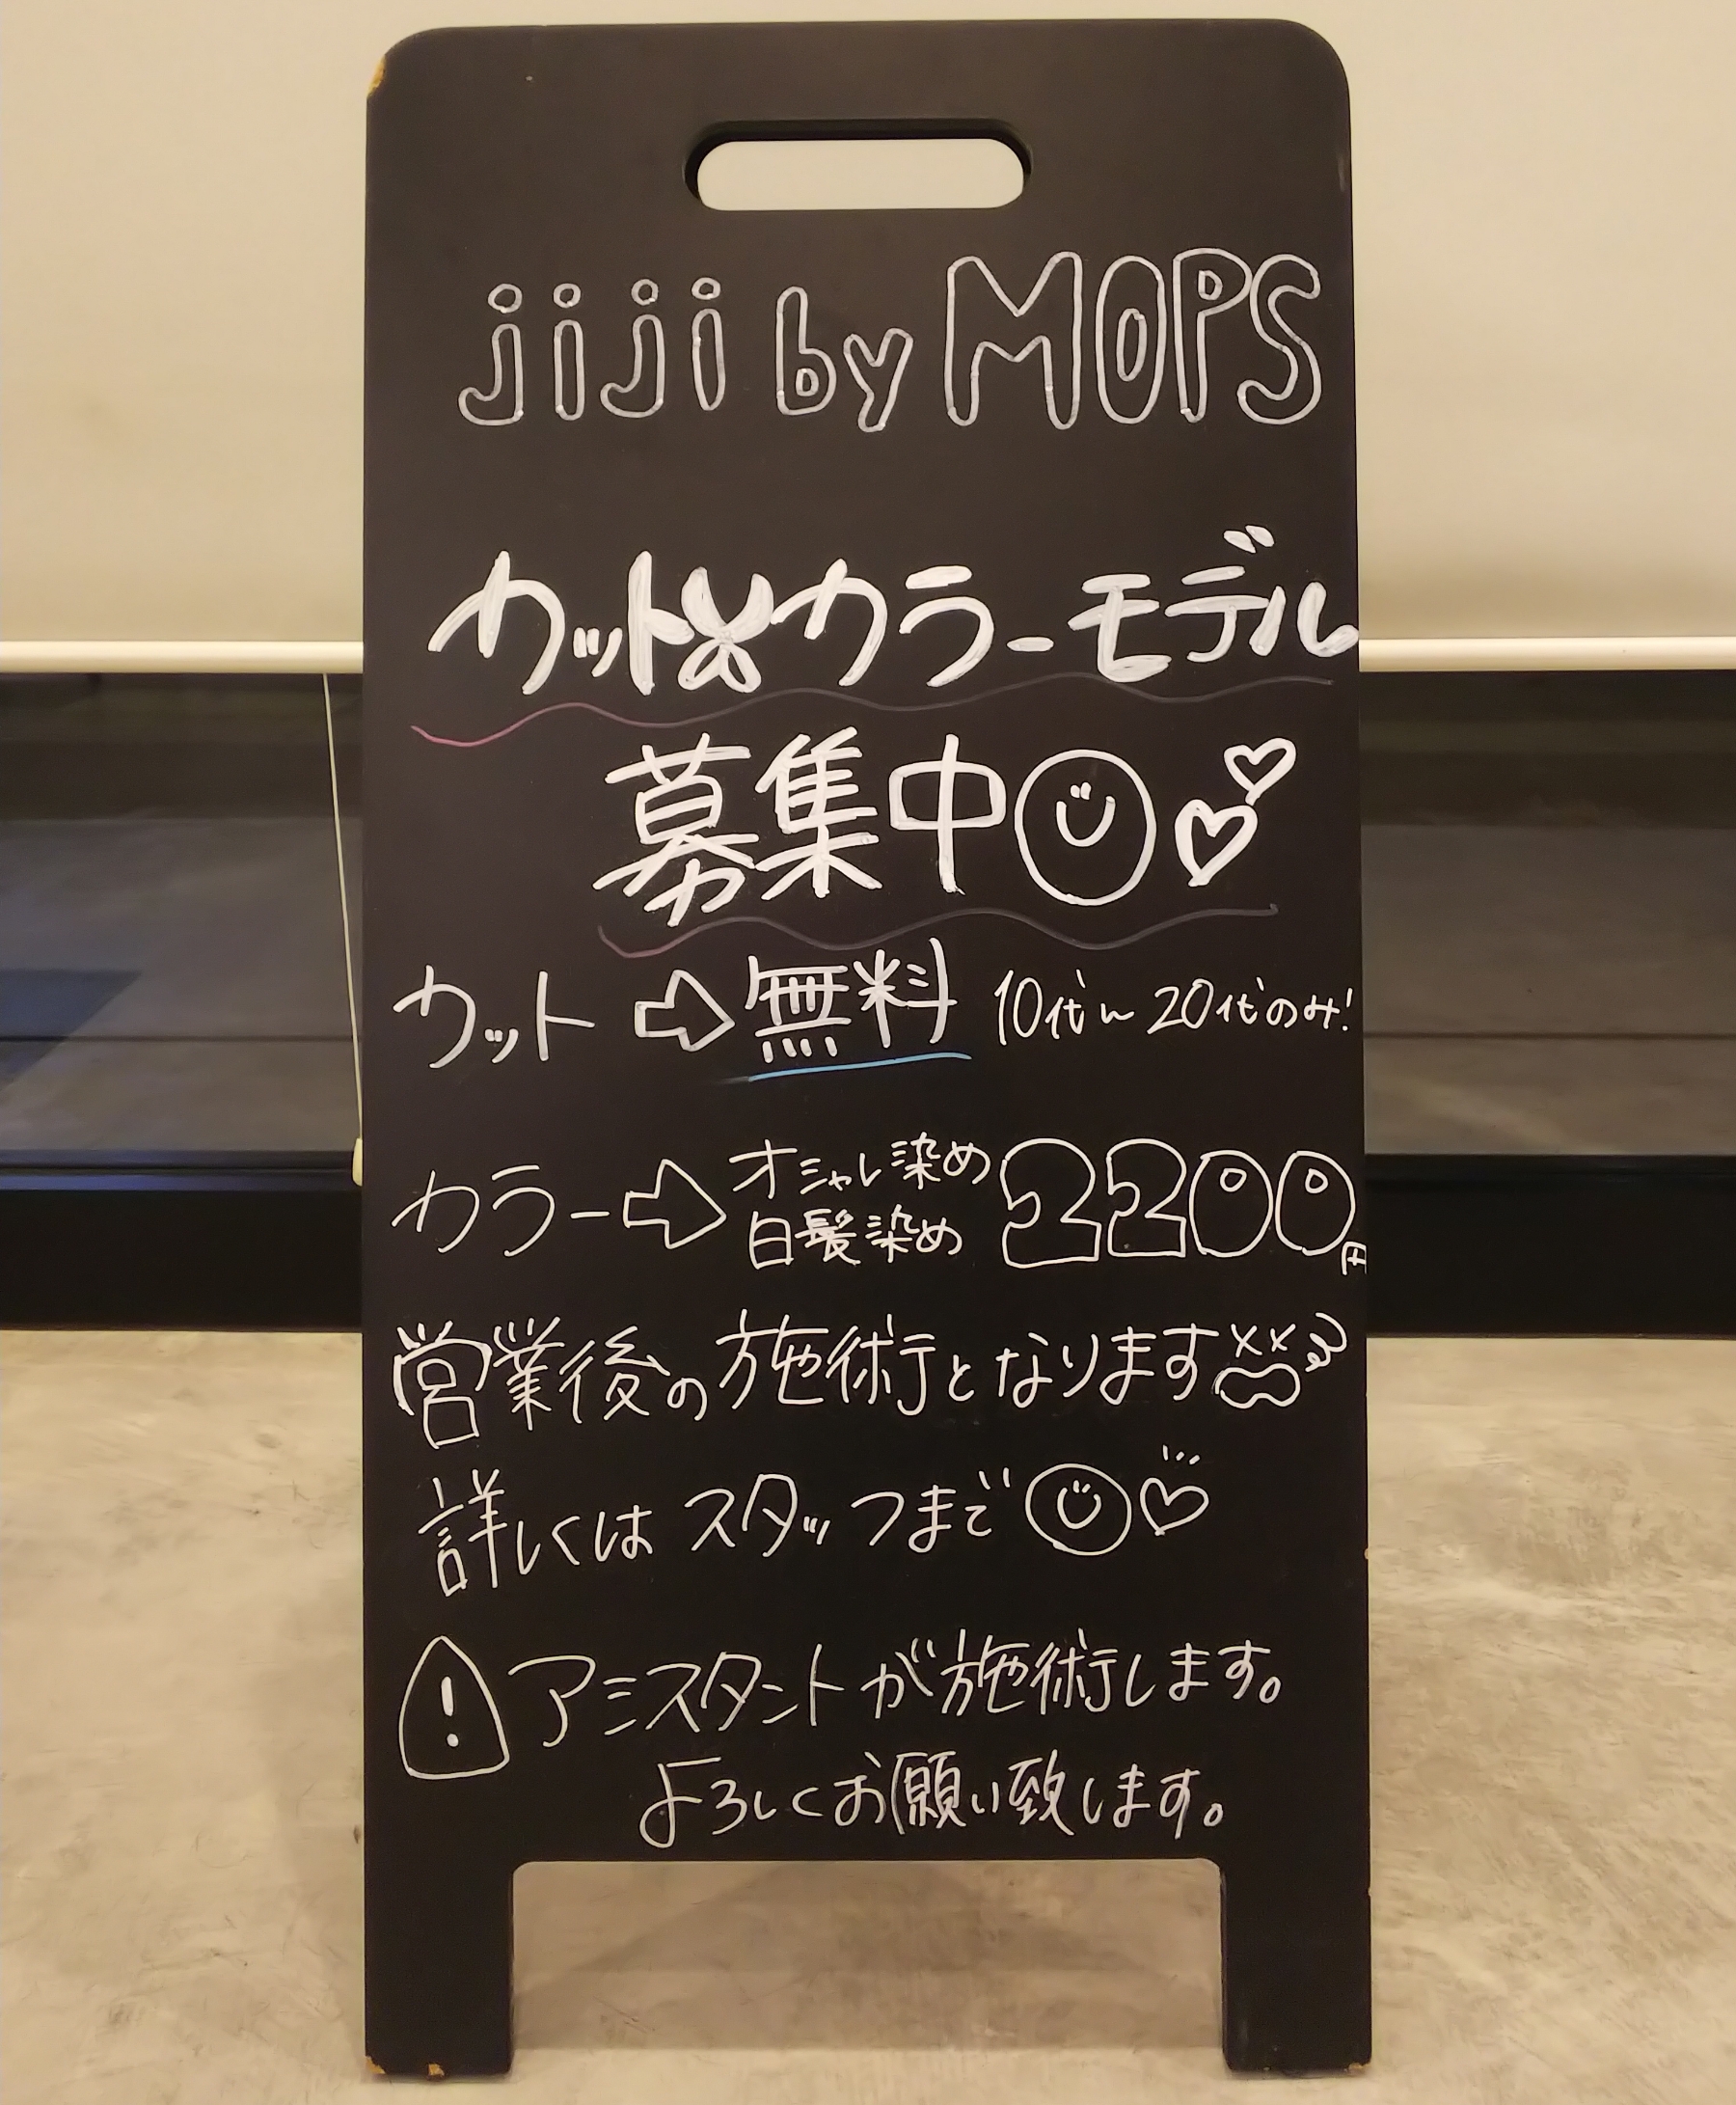 jiji by MOPS
カット カラーモデル
募集中
カット⇨無料 10代〜20代のみ!
カラー⇨オシャレ染め 白髪染め 2200円
営業後の施術となります
詳しくは スタッフまで
アシスタントが施術します。
よろしくお願い致します。